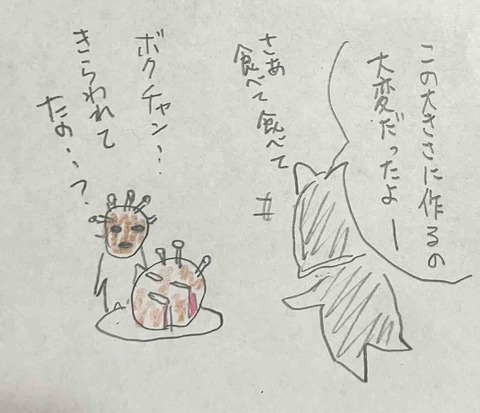 この大きさに作るの
大変だったよー
さあ
食べて食べて
ボクチャン・・
きらわれて
たの・・？